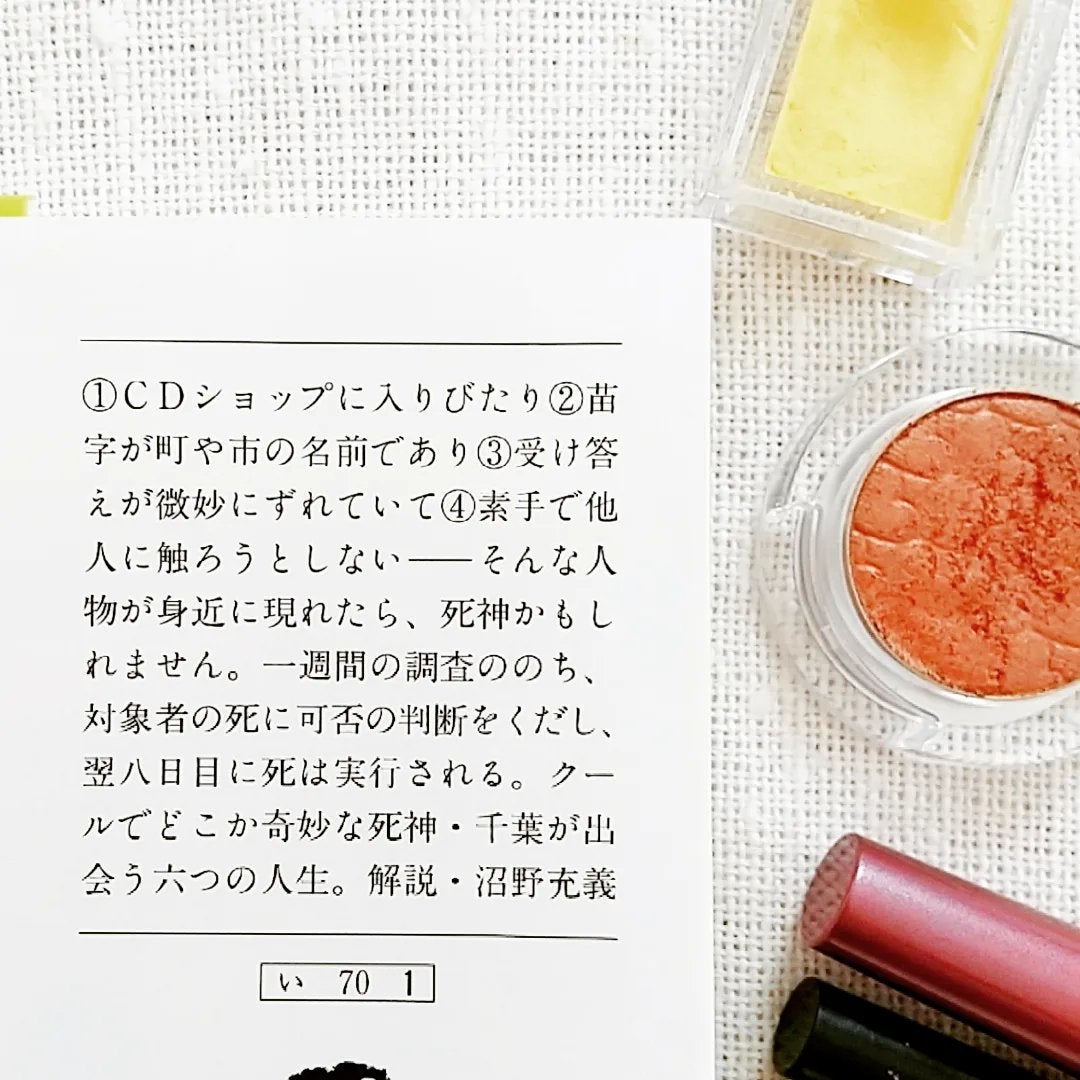 ①ＣＤショップに入りびたり②苗
字が町や市の名前であり③受け答
えが微妙にずれていて④素手で他
人に触ろうとしない――そんな人
物が身近に現れたら、死神かもし
れません。一週間の調査ののち、
対象者の死に可否の判断をくだし、
翌八日目に死は実行される。クー
ルでどこか奇妙な死神・千葉が出
会う六つの人生。解説・沼野充義
い 70 1